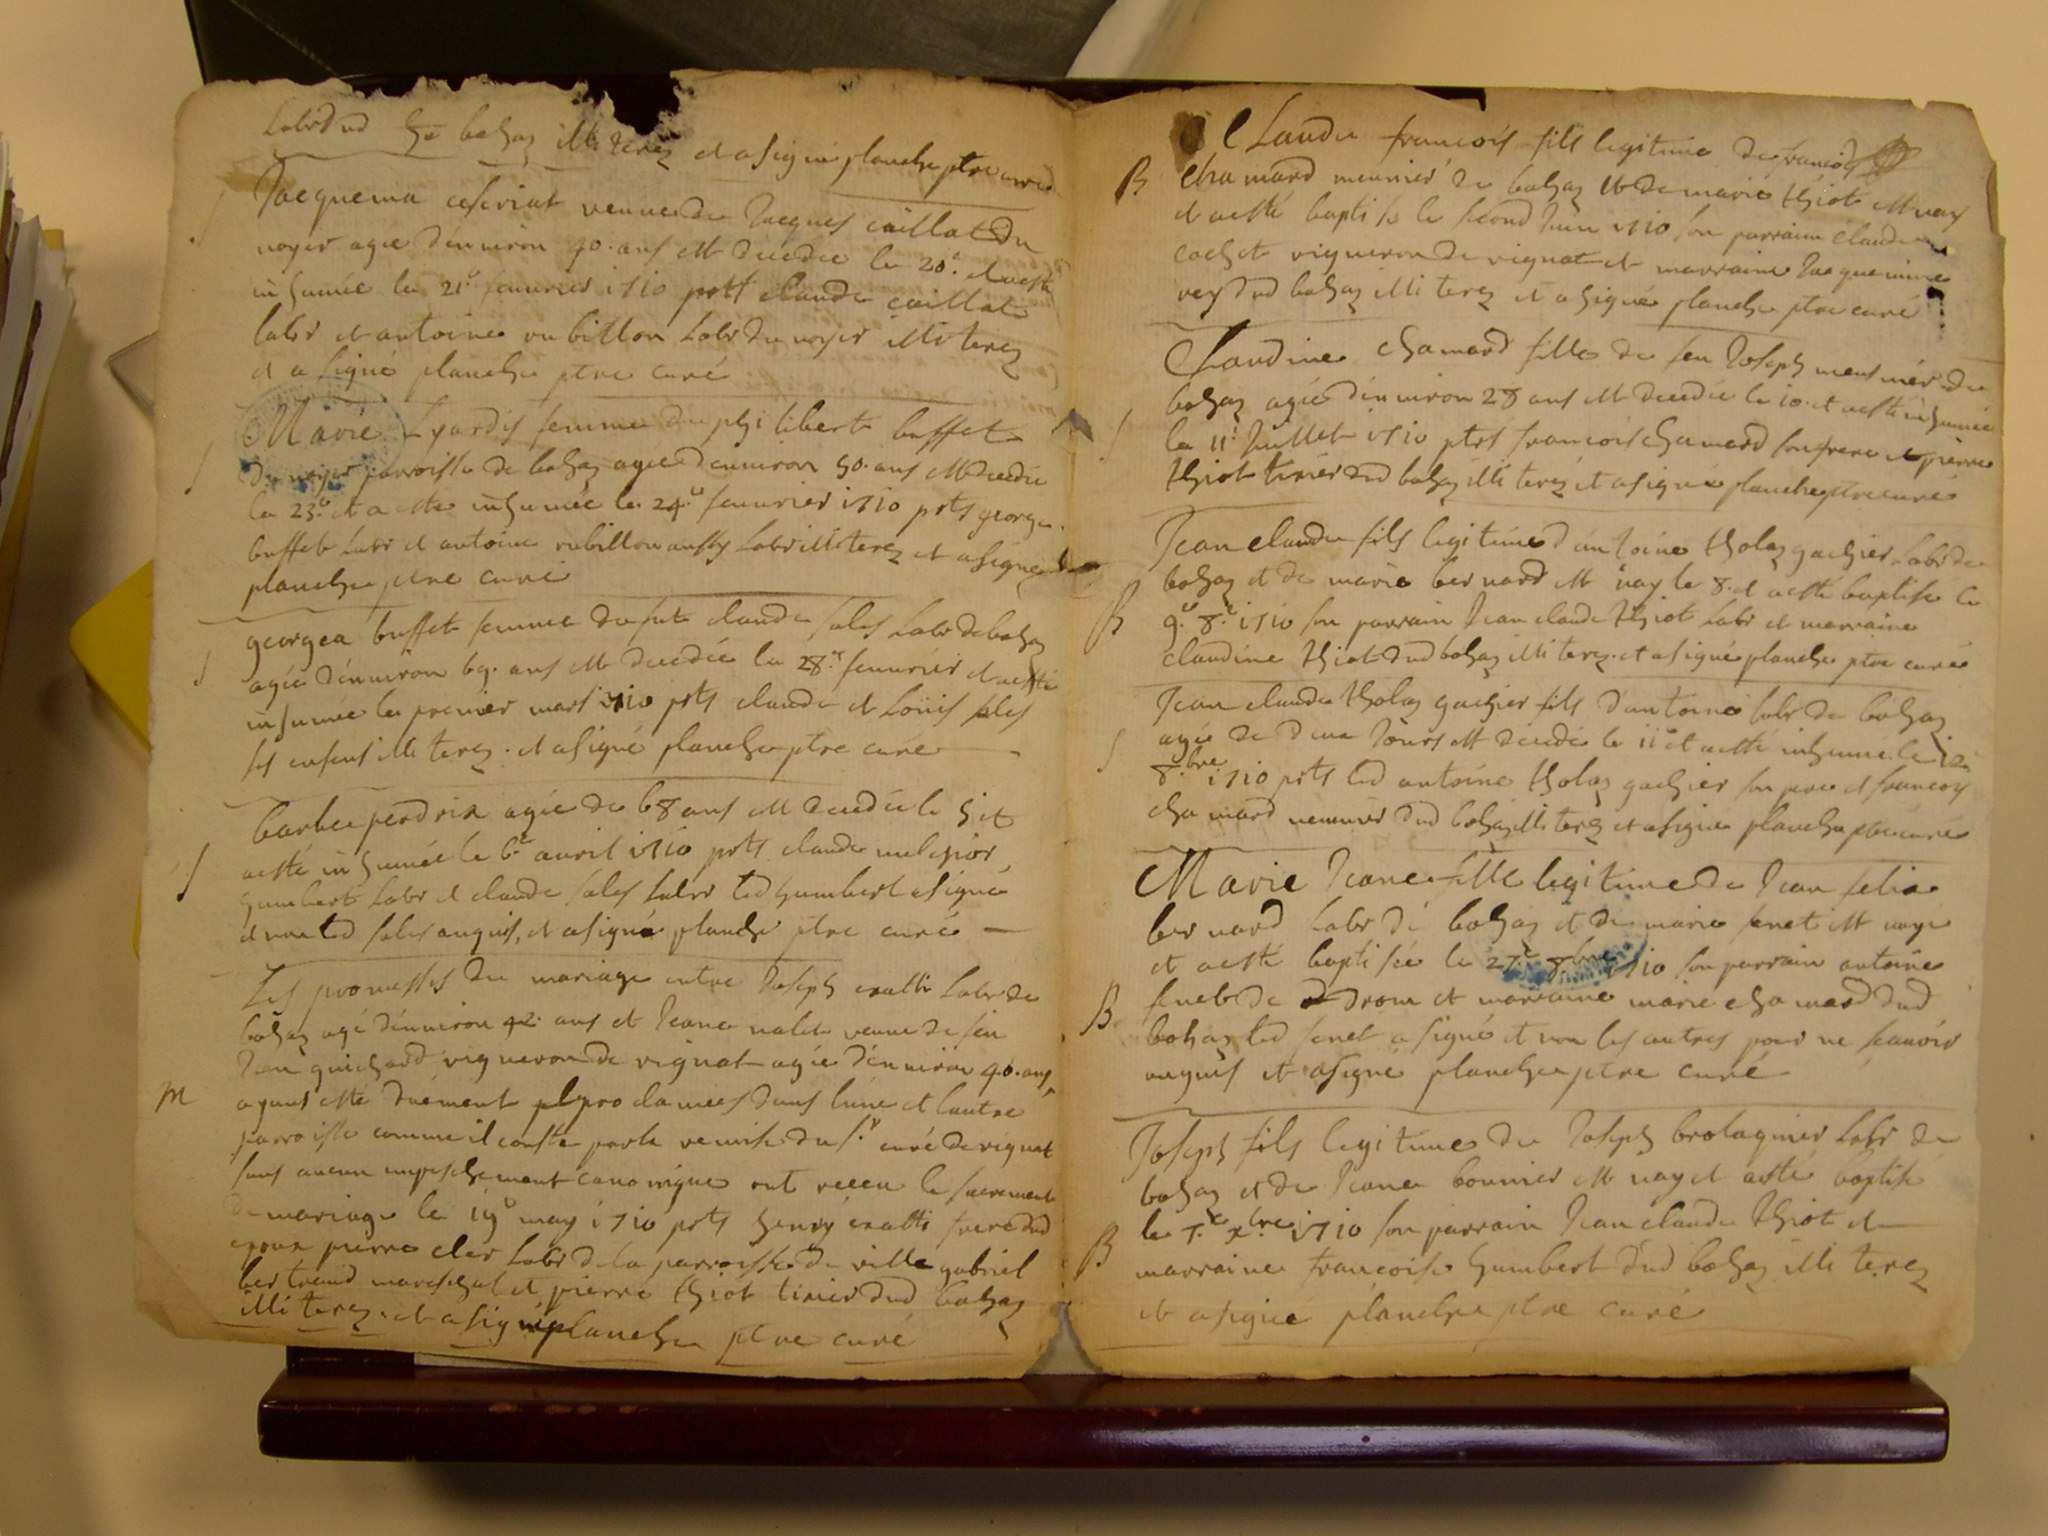 Labr dud bohaz illiterez et a signé planche ptre curé
Jacquema ceseriat veuve de Jacques caillat du
noyer agée d'environ 40. ans est decedée le 20.e et acesté
inhumée le 21.e feuurier 1710 pnts claude caillat
labr et antoine rubillon labr du noyer illiterez
et a signé planche ptre curé
S
Marie Lyardis femme de philibert buffet
du noyer parroisse de bohaz agée d'enuiron 50. ans est decedée
le 23.e et a esté inhumée le 24.e feuurier 1710 pnts george
buffet labr et antoine rubillon aussy labr illiterez et a signé
planche ptre curé
S
georgea buffet femme de fut claude sales labr de bohaz
agée d'enuiron 69. ans est decedée le 28.e feuurier et acesté
inhumée le premier mars 1710 pnts claude et Loüis sales
ses enfans illiterez. et a signé planche ptre curé
S
barbe perdrix agée de 68 ans est decedée le 5 et
acesté inhumée le 6.e auril 1710 pnts claude melchior
humbert labr et claude sales labr led humbert a signé
et non led sales enquis, et a signé planche ptre curé
S
Les promesses de mariage entre Joseph exatti labr de
bohaz agé d'enuiron 42. ans et Jeane nalet veuue de feu
Jean guichard vigneron de rignat agée d'enuiron 40. ans
M
ayans esté duëment proclamées dans lune et lautre
parroisse comme il conste par la remise du s.r curé de rignat
sans aucun empeschement canonique ont receu le sacrement
de mariage le 19.e may 1710 pnts henry exatti frere dud
epoux pierre cler labr de la parroisse de ville gabriel
bertrand mareschal et pierre thiot tixier dud bohaz
illiterez. et a signé planche ptre curé
Claude francois fils legitime de francois
B
chamard meunier de bohaz et de marie thiot est nay
et acesté baptisé le second Juin 1710 son parrain claude
cochet vigneron de rignat et marraine Jacquemine
rey dud bohaz illiterez et a signé planche ptre curé
Claudine chamard fille de feu Joseph meusnier de
bohaz agée d'enuiron 28 ans est decedée le 10. et acesté inhumée
S
le 11.e Juillet 1710 pnts francois chamard son frere et pierre
thiot tixier dud bohaz illiterez et a signé planche ptre curé
Jean claude fils legitime d'antoine tholaz gachier labr de
bohaz et de marie bernard est nay le 8. et acesté baptisé le
B
9.e 8.e 1710 son parrain Jean claude thiot labr et marraine
claudine thiot dud bohaz illiterez. et a signé planche ptre curé
Jean claude tholaz gachier fils d'antoine labr de bohaz
agée de deux Jours est decedé le 11.e et acesté inhumé le 12
S
8.bre 1710 pnts led antoine tholaz gachier son pere et francoy
chamard meunier dud bohaz illiterez et a signé planche ptre curé
Marie Jeane fille legitime de Jean felix
bernard labr de bohaz et de marie fenet est naye
et acesté baptisée le 27.e 8.bre 1710 son parrain antoine
B
fenet de drom et marraine marie chamard dud
bohaz led fenet a signé et non les autres pour ne scauoir
enquis et a signé planche ptre curé
Joseph fils legitime de Joseph brolagnier labr de
bohaz et de Jeane bonnier est nay et acesté baptisé
B
le 7.e x.bre 1710 son parrain Jean claude thiot et
marraine francoise humbert dud bohaz illiterez
et a signé planche ptre curé